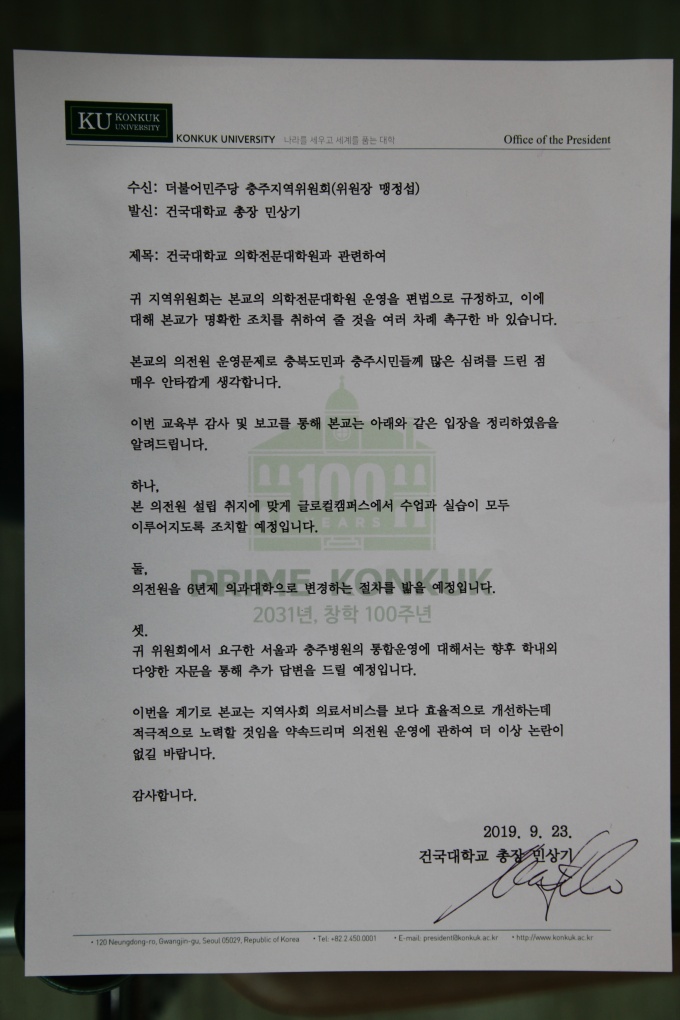 KU KONKUK
UNIVERSITY
KONKUK UNIVERSITY 나라를 세우고 세계를 품는 대학
Office of the President
수신: 더불어민주당 충주지역위원회(위원장 맹정섭)
발신: 건국대학교 총장 민상기
제목: 건국대학교 의학전문대학원과 관련하여
귀 지역위원회는 본교의 의학전문대학원 운영을 편법으로 규정하고, 이에
대해 본교가 명확한 조치를 취하여 줄 것을 여러 차례 촉구한 바 있습니다.
본교의 의전원 운영문제로 충북도민과 충주시민들께 많은 심려를 드린 점
매우 안타깝게 생각합니다.
이번 교육부 감사 및 보고를 통해 본교는 아래와 같은 입장을 정리하였음을
알려드립니다.
하나,
본 의전원 설립 취지에 맞게 글로컬캠퍼스에서 수업과 실습이 모두
이루어지도록 조치할 예정입니다.
둘,
의전원을 6년제 의과대학으로 변경하는 절차를 밟을 예정입니다.
셋.
귀 위원회에서 요구한 서울과 충주병원의 통합운영에 대해서는 향후 학내외
다양한 자문을 통해 추가 답변을 드릴 예정입니다.
이번을 계기로 본교는 지역사회 의료서비스를 보다 효율적으로 개선하는데
적극적으로 노력할 것임을 약속드리며 의전원 운영에 관하여 더 이상 논란이
없길 바랍니다.
감사합니다.
100
YEARS
PRIME KONKUK
2031년, 창학 100주년
2019. 9. 23.
건국대학교 총장 민상기
• 120 Neungdong-ro, Gwangjin-gu, Seoul 05029, Republic of Korea • Tel: +82.2.450.0001 • E-mail: president@konkuk.ac.kr • http://www.konkuk.ac.kr